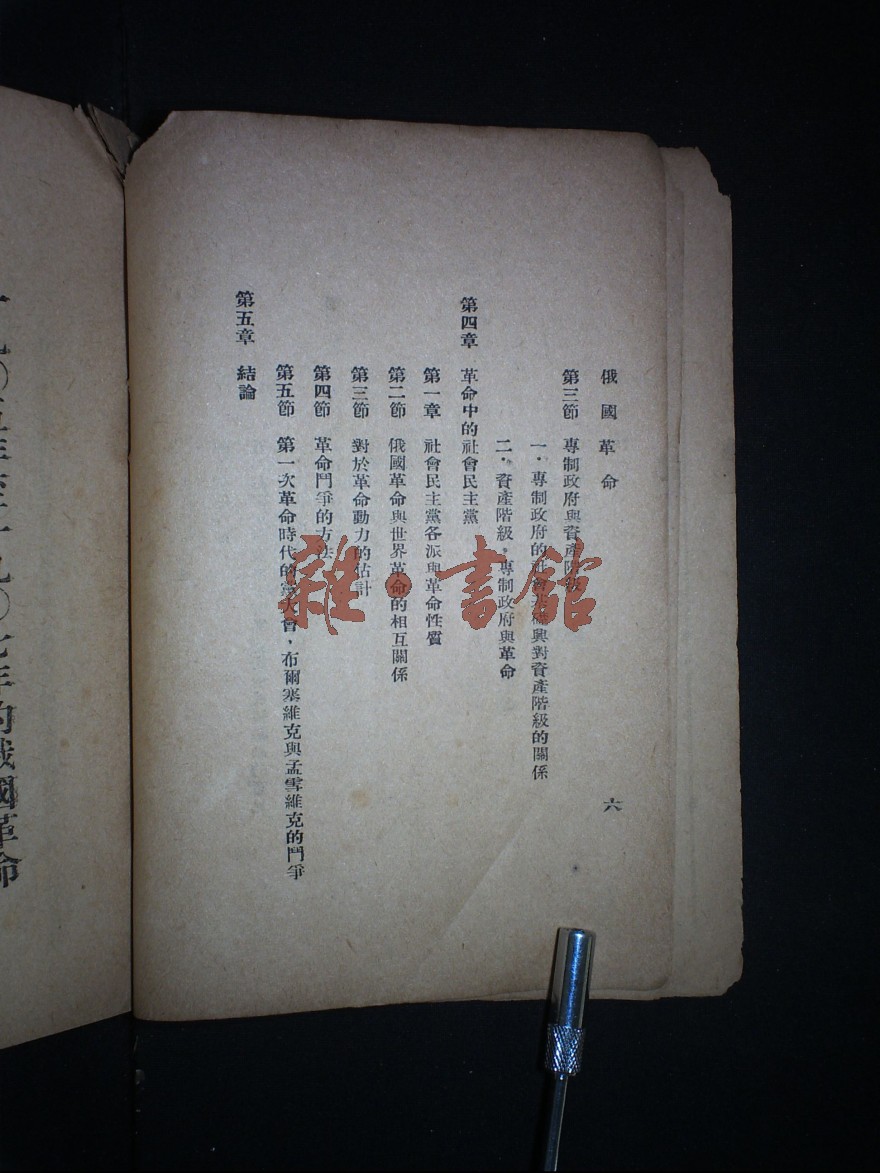 俄國革命
六
第三節 專制政府與資產階級
一．專制政府的社會基礎與對資產階級的關係
二．資產階級，專制政府與革命
第四章 革命中的社會民主黨
第一章 社會民主黨各派與革命性質
第二節 俄國革命與世界革命的相互關係
第三節 對於革命動力的估計
第四節 革命鬥爭的方法
第五節 第一次革命時代的黨大會，布爾塞維克與孟雪維克的鬥爭
第五章 結論
一九〇五年至一九〇七年的俄國革命
雜·書館